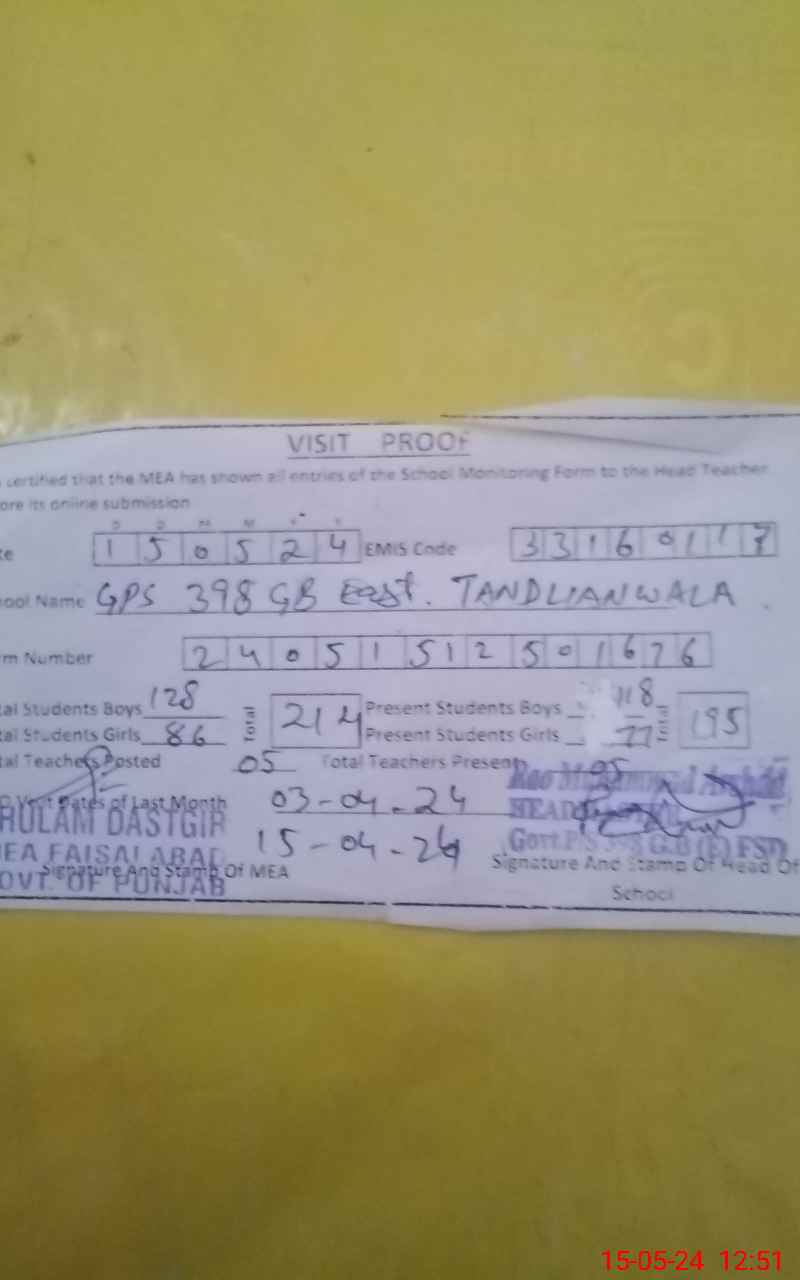 VISIT PROOF
certified that the MEA has shown all entries of the School Monitoring Form to the Head Teacher
ore its online submission
D D M M Y Y
te 150524 EMIS Code 33160117
ool Name GPS 398 GB East. TANDLIANWALA
rm Number 24051512501676
al Students Boys 128 214 Present Students Boys 118 195
al Students Girls 86 Present Students Girls 77
al Teachers Posted 05 Total Teachers Present 05
Visit Dates of Last Month 03-04-24
15-04-24
HULAM DASTGIR
EA FAISALABAD
OVT. OF PUNJAB
Signature And Stamp Of MEA
HEAD
Govt P/S 398 G.B (E) FSD
Signature And Stamp Of Head Of
School
15-05-24 12:51